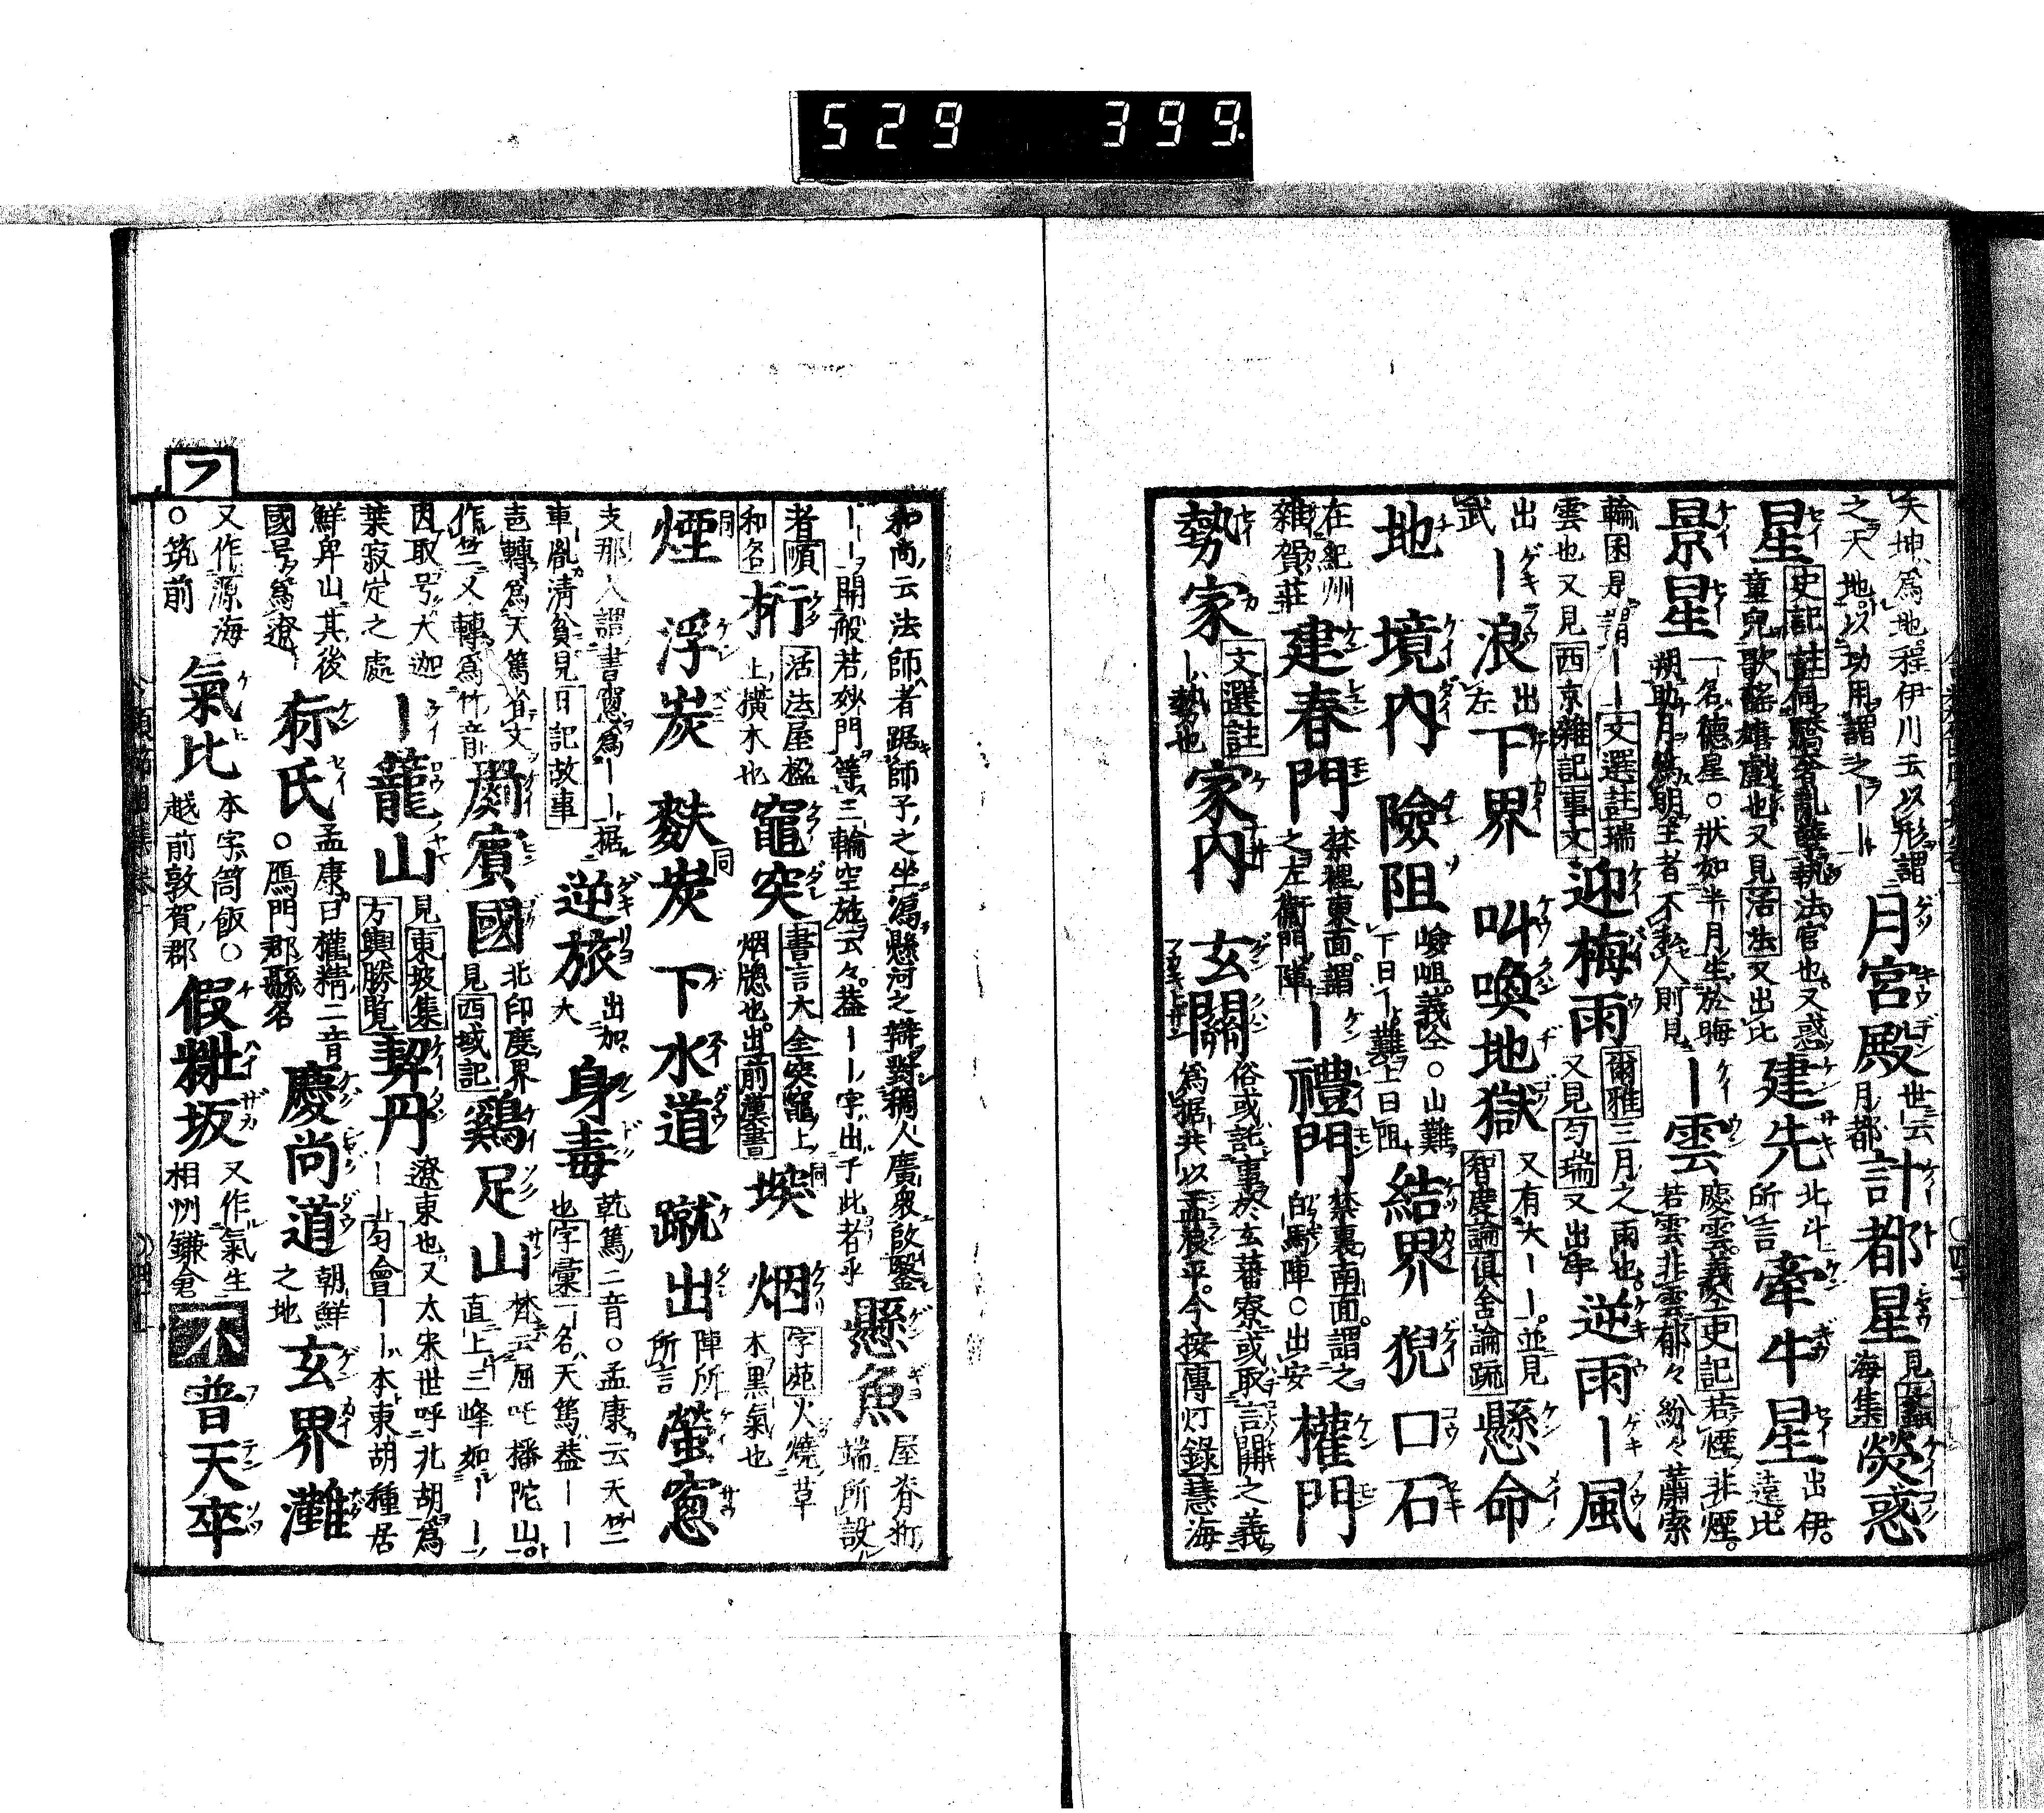 529 399.
天坤爲地程伊川云以形謂
之天地以功用謂之ーー
月宮殿 世云月都 計都星 見 海集 熒惑
星 史記註 執法官也又惑
童兒歌謠嬉戲也又見活法又出比
建先 北斗所言 牽牛星 出伊遠比
景星 一名德星。狀如半月生於晦
朔助月爲明王者不私人則見
ー雲 慶雲義仝史記若煙非煙。
若雲非雲郁々紛々蕭索
輪困是謂ーー文選註瑞
雲也又見西京雜記事文
迎梅雨 爾雅三月之雨也
又見匀瑞又出 逆雨ー風
出武 ー浪 出左 下界 叫喚地獄 又有大ーー。並見
智度論俱舍論疏 懸命
地 境内 險阻 嶮岨義仝○山難
下曰ー難上曰阻 結界 猊口石
在紀州
雜賀莊
建春門 禁裡東面謂
之左衞門陣 ー禮門 禁裏南面謂之
白馬陣○出安 權門
勢家 文選註
ー勢也 家内 玄關 俗或託事於玄蕃寮或取言開之義
爲据共以孟浪乎今按傳灯錄慧海
和尚云法師者踞師子之坐瀉懸河之辯對稠人廣衆啟鑿
ーー開般若妙門等三輪空施云々。蓋ーー字出于此者乎
懸魚 屋脊桁
端所設
者 和名 桁 活法屋楹
上橫木也 竈突 書言大全突竈上
烟牕也。出前漢書 堗 同 烟 字苑火燒草
木黑氣也
煙 同 浮炭 麩炭 同 下水道 蹴出 陣所
所言 螢窓
支那人謂書窓爲ーー据
車胤淸貧見日記故事
逆旅 出加
大 身毒 乾篤二音○孟康云天竺
也字彙一名天篤蓋ーー
轉爲天篤省文
作竺又轉爲竹音
罽賓國 北印度界
見西域記 鷄足山 梵云屈吒播陀山
直上三峰如ーー
因取号大迦
葉寂定之處
ー籠山 見東坡集
方輿勝覽 契丹 遼東也又太宋世呼北胡爲
ーー匀會ーー本東胡種居
鮮卑山其後
國号爲遼
㹂氏 孟康曰權精二音
○鴈門郡縣名 慶尚道 朝鮮
之地 玄界灘
又作源海
○筑前
氣比 本字笥飯○
越前敦賀郡 假粧坂 又作氣生
相州鎌倉 不 普天卒
フ